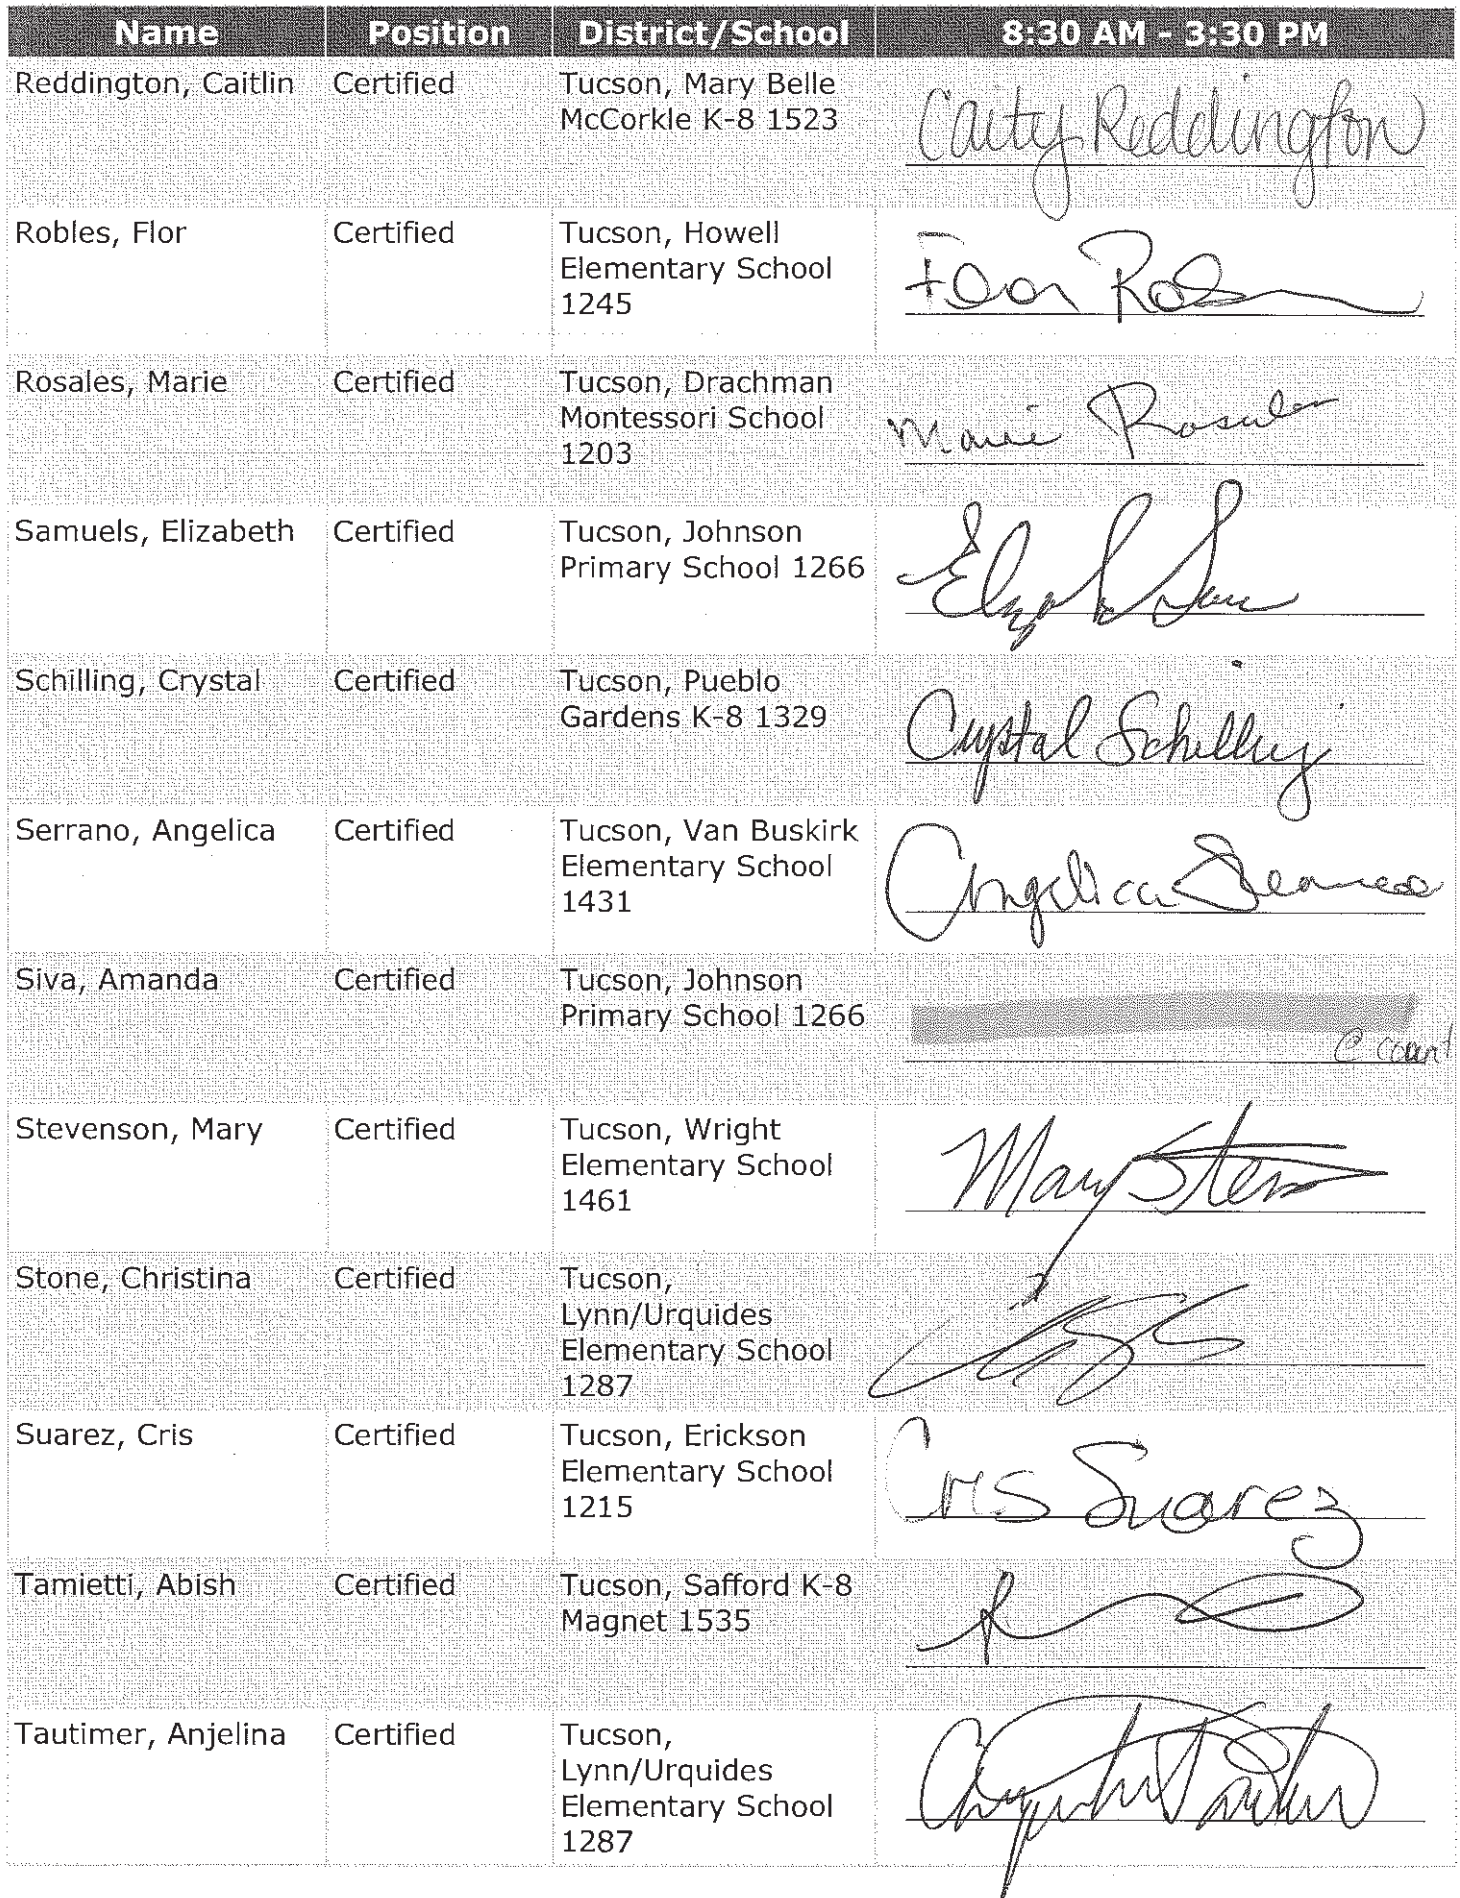 Name Position District/School 8:30 AM - 3:30 PM
Reddington, Caitlin Certified Tucson, Mary Belle
McCorkle K-8 1523
Caity Reddington
Robles, Flor Certified Tucson, Howell
Elementary School
1245
Flor
Rosales, Marie Certified Tucson, Drachman
Montessori School
1203
Marie Rosales
Samuels, Elizabeth Certified Tucson, Johnson
Primary School 1266
Schilling, Crystal Certified Tucson, Pueblo
Gardens K-8 1329
Crystal Schilling
Serrano, Angelica Certified Tucson, Van Buskirk
Elementary School
1431
Angelica Serrano
Siva, Amanda Certified Tucson, Johnson
Primary School 1266
Stevenson, Mary Certified Tucson, Wright
Elementary School
1461
Mary
Stone, Christina Certified Tucson,
Lynn/Urquides
Elementary School
1287
Suarez, Cris Certified Tucson, Erickson
Elementary School
1215
Cris Suarez
Tamietti, Abish Certified Tucson, Safford K-8
Magnet 1535
Tautimer, Anjelina Certified Tucson,
Lynn/Urquides
Elementary School
1287